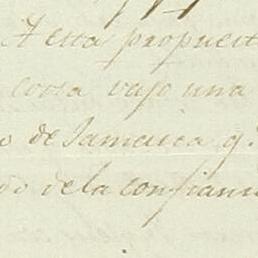 A esta propuest
cossa vajo una
o de Jamaica q.
do dela confian